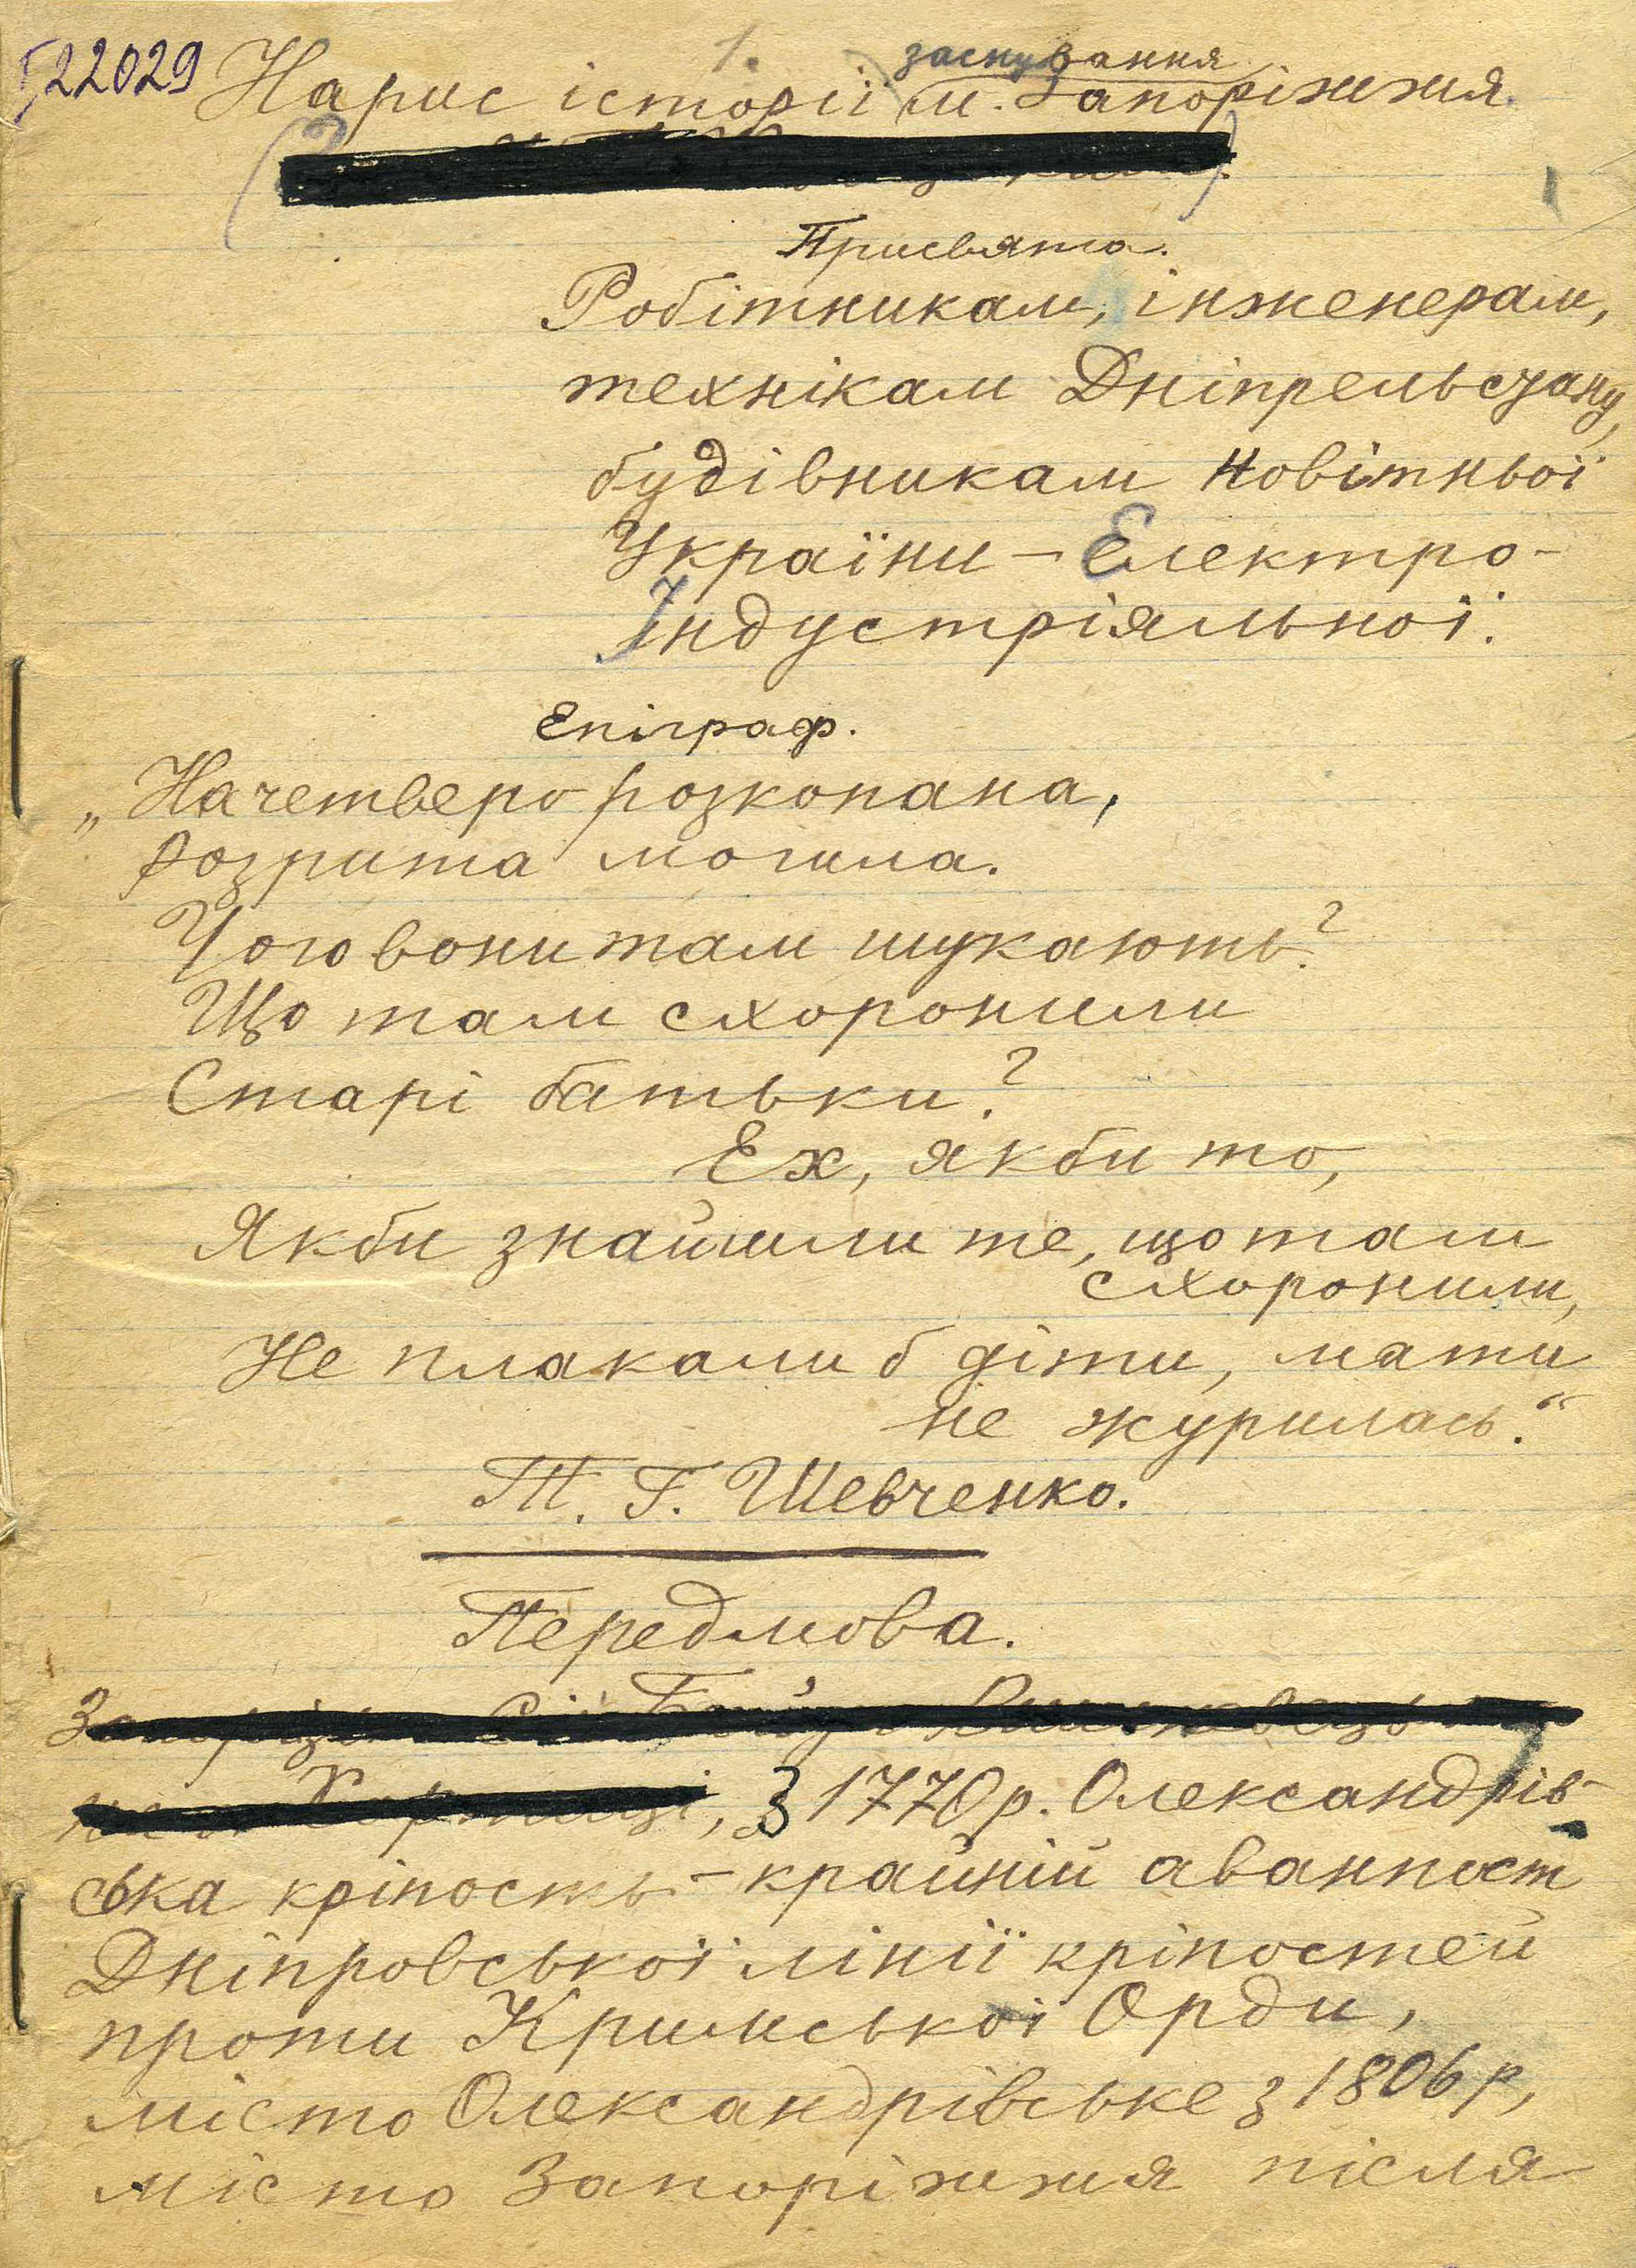 22029
1.
заснування
Нарис історії м. Запоріжжя.
Присвята.
Робітникам, інженерам,
технікам Дніпрельстану,
будівникам новітньої
України – Електро-
Індустріяльної.
Епіграф.
„Начетверо розкопана,
Розрита могила.
Чого вони там шукають?
Що там схоронили
Старі батьки?
Ех, якби то,
Якби знайшли те, що там
схоронили,
Не плакали б діти, мати
не журилась.“
Т. Г. Шевченко.
Передмова.
, З 1770 р. Олександрів-
ська кріпость – крайній аванпост
Дніпровської лінії кріпостей
проти Кримської Орди,
місто Олександрівське з 1806 р,
місто Запоріжжя після